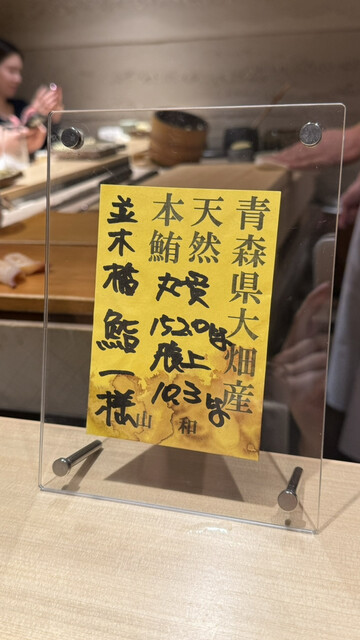 青森県大畑産
天然
本鮪
丸貫
152.0kg
腹上
10.3kg
並木橋 鮨一様
山和